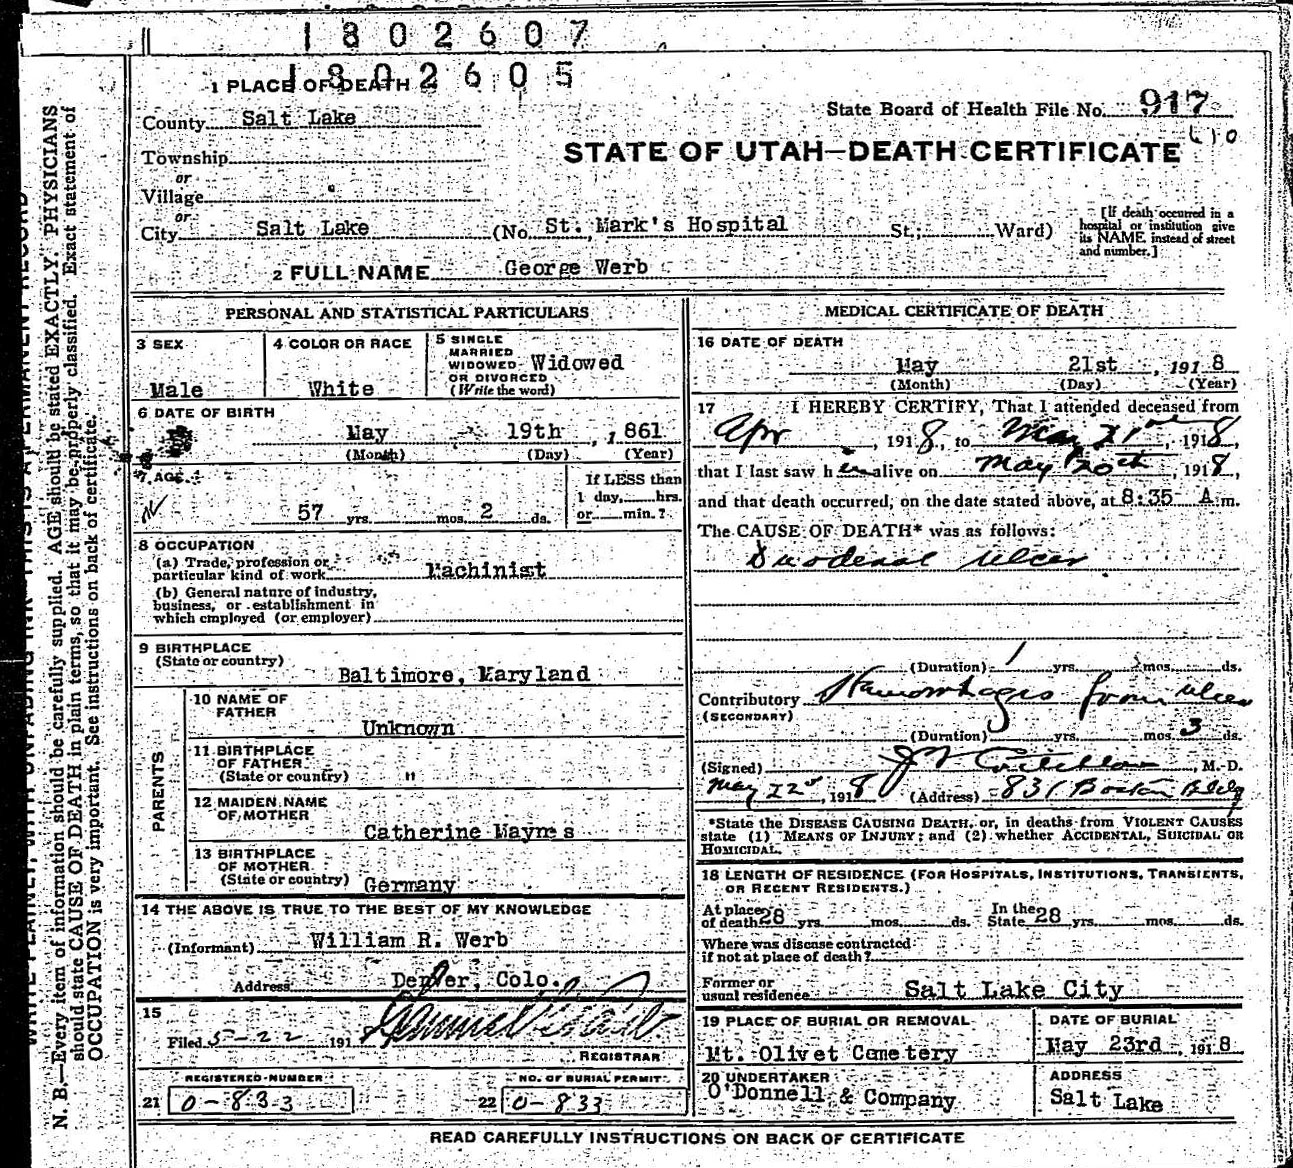 1802607
1802605
1 PLACE OF DEATH
State Board of Health File No. 917
County Salt Lake
STATE OF UTAH—DEATH CERTIFICATE
Township
or
Village
or
City Salt Lake (No. St. Mark's Hospital St.; Ward)
[If death occurred in a
hospital or institution give
its NAME instead of street
and number.]
2 FULL NAME George Werb
PERSONAL AND STATISTICAL PARTICULARS
3 SEX
Male
4 COLOR OR RACE
White
5 SINGLE
MARRIED
WIDOWED
OR DIVORCED
(Write the word)
Widowed
6 DATE OF BIRTH
May 19th, 1861
(Month) (Day) (Year)
7 AGE
57 yrs. mos. 2 ds.
If LESS than
1 day, hrs.
or min.?
8 OCCUPATION
(a) Trade, profession or
particular kind of work Machinist
(b) General nature of industry,
business, or establishment in
which employed (or employer)
9 BIRTHPLACE
(State or country)
Baltimore, Maryland
PARENTS
10 NAME OF
FATHER
Unknown
11 BIRTHPLACE
OF FATHER
(State or country) "
12 MAIDEN NAME
OF MOTHER
Catherine Maynes
13 BIRTHPLACE
OF MOTHER
(State or country) Germany
14 THE ABOVE IS TRUE TO THE BEST OF MY KNOWLEDGE
(Informant) William R. Werb
Address Denver, Colo.
15
Filed 5-22 191
REGISTRAR
REGISTERED NUMBER
21 0-833
NO. OF BURIAL PERMIT
22 0-833
MEDICAL CERTIFICATE OF DEATH
16 DATE OF DEATH
May 21st, 1918
(Month) (Day) (Year)
17 I HEREBY CERTIFY, That I attended deceased from
Apr, 1918, to May 21, 1918,
that I last saw h alive on May 20th, 1918,
and that death occurred, on the date stated above, at 8:35 A m.
The CAUSE OF DEATH* was as follows:
Duodenal Ulcer
(Duration) 1 yrs. mos. ds.
Contributory Hemorrhages from ulcer
(SECONDARY)
(Duration) yrs. mos. 3 ds.
(Signed) M. D.
May 22, 1918 (Address) 831 Boston Bldg
*State the DISEASE CAUSING DEATH, or, in deaths from VIOLENT CAUSES
state (1) MEANS OF INJURY; and (2) whether ACCIDENTAL, SUICIDAL OR
HOMICIDAL.
18 LENGTH OF RESIDENCE (FOR HOSPITALS, INSTITUTIONS, TRANSIENTS,
OR RECENT RESIDENTS.)
At place
of death 28 yrs. mos. ds.
In the
State 28 yrs. mos. ds.
Where was disease contracted
if not at place of death?
Former or
usual residence Salt Lake City
19 PLACE OF BURIAL OR REMOVAL
Mt. Olivet Cemetery
DATE OF BURIAL
May 23rd, 1918
20 UNDERTAKER
O'Donnell & Company
ADDRESS
Salt Lake
READ CAREFULLY INSTRUCTIONS ON BACK OF CERTIFICATE
N. B.—Every item of information should be carefully supplied. AGE should be stated EXACTLY. PHYSICIANS
should state CAUSE OF DEATH in plain terms, so that it may be properly classified. Exact statement of
OCCUPATION is very important. See instructions on back of certificate.